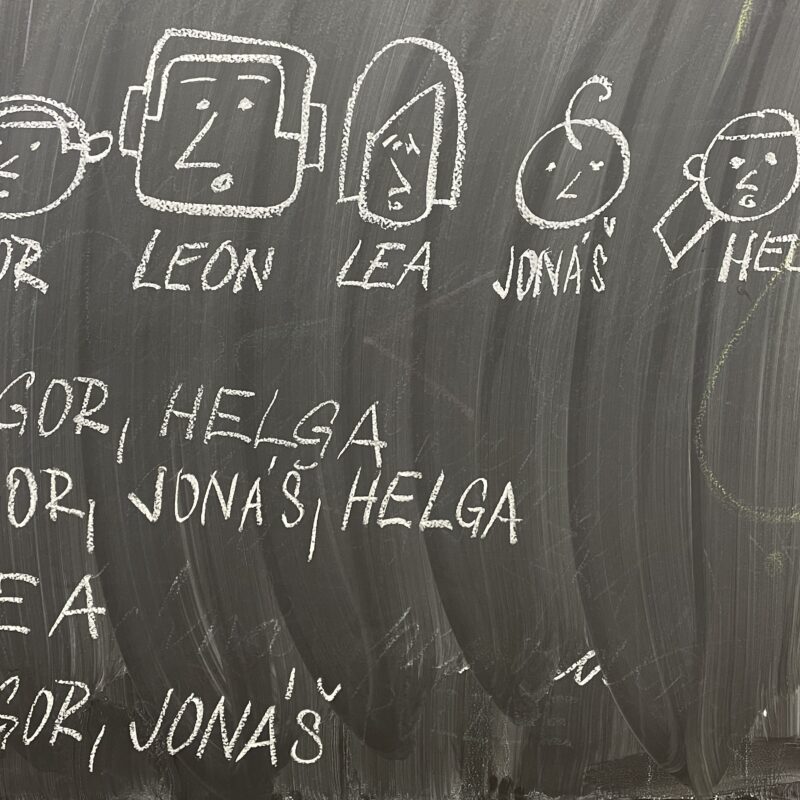 OR LEON LEA JONÁŠ HEL
GOR, HELGA
OR, JONÁŠ, HELGA
EA
GOR, JONÁŠ